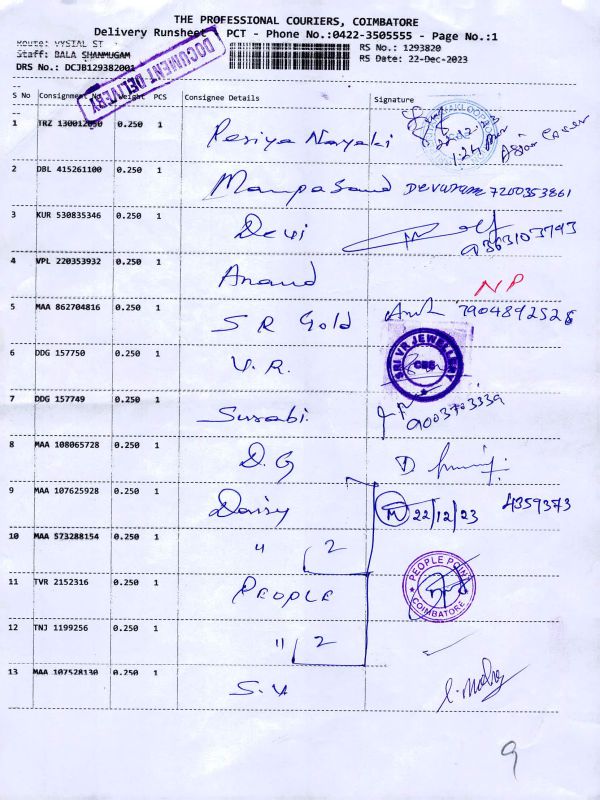 THE PROFESSIONAL COURIERS, COIMBATORE
Delivery Runsheet - PCT - Phone No.:0422-3505555 - Page No.:1
Route: VYSIAL ST RS No.: 1293820
Staff: BALA SHANMUGAM RS Date: 22-Dec-2023
DRS No.: DCJB129382001
DOCUMENT DELIVERY
S No Consignment No Weight PCS Consignee Details Signature
1 TRZ 130012050 0.250 1 Periya Nayaki 22.12.23
1:24
2 DBL 415261100 0.250 1 Manpasand Devaram 7200353861
3 KUR 530835346 0.250 1 Devi 9363103793
4 VPL 220353932 0.250 1 Anand NP
5 MAA 862704816 0.250 1 S R Gold 7904892528
6 DDG 157750 0.250 1 V.R. SRI VR JEWELLERY CBE
7 DDG 157749 0.250 1 Surabi. 9003703339
8 MAA 108065728 0.250 1 D.G D
9 MAA 107625928 0.250 1 Daisy M 22/12/23 4359373
10 MAA 573288154 0.250 1 " 2
11 TVR 2152316 0.250 1 PEOPLE PEOPLE POINT COIMBATORE
12 TNJ 1199256 0.250 1 " 2
13 MAA 107528130 0.250 1 S.V
9